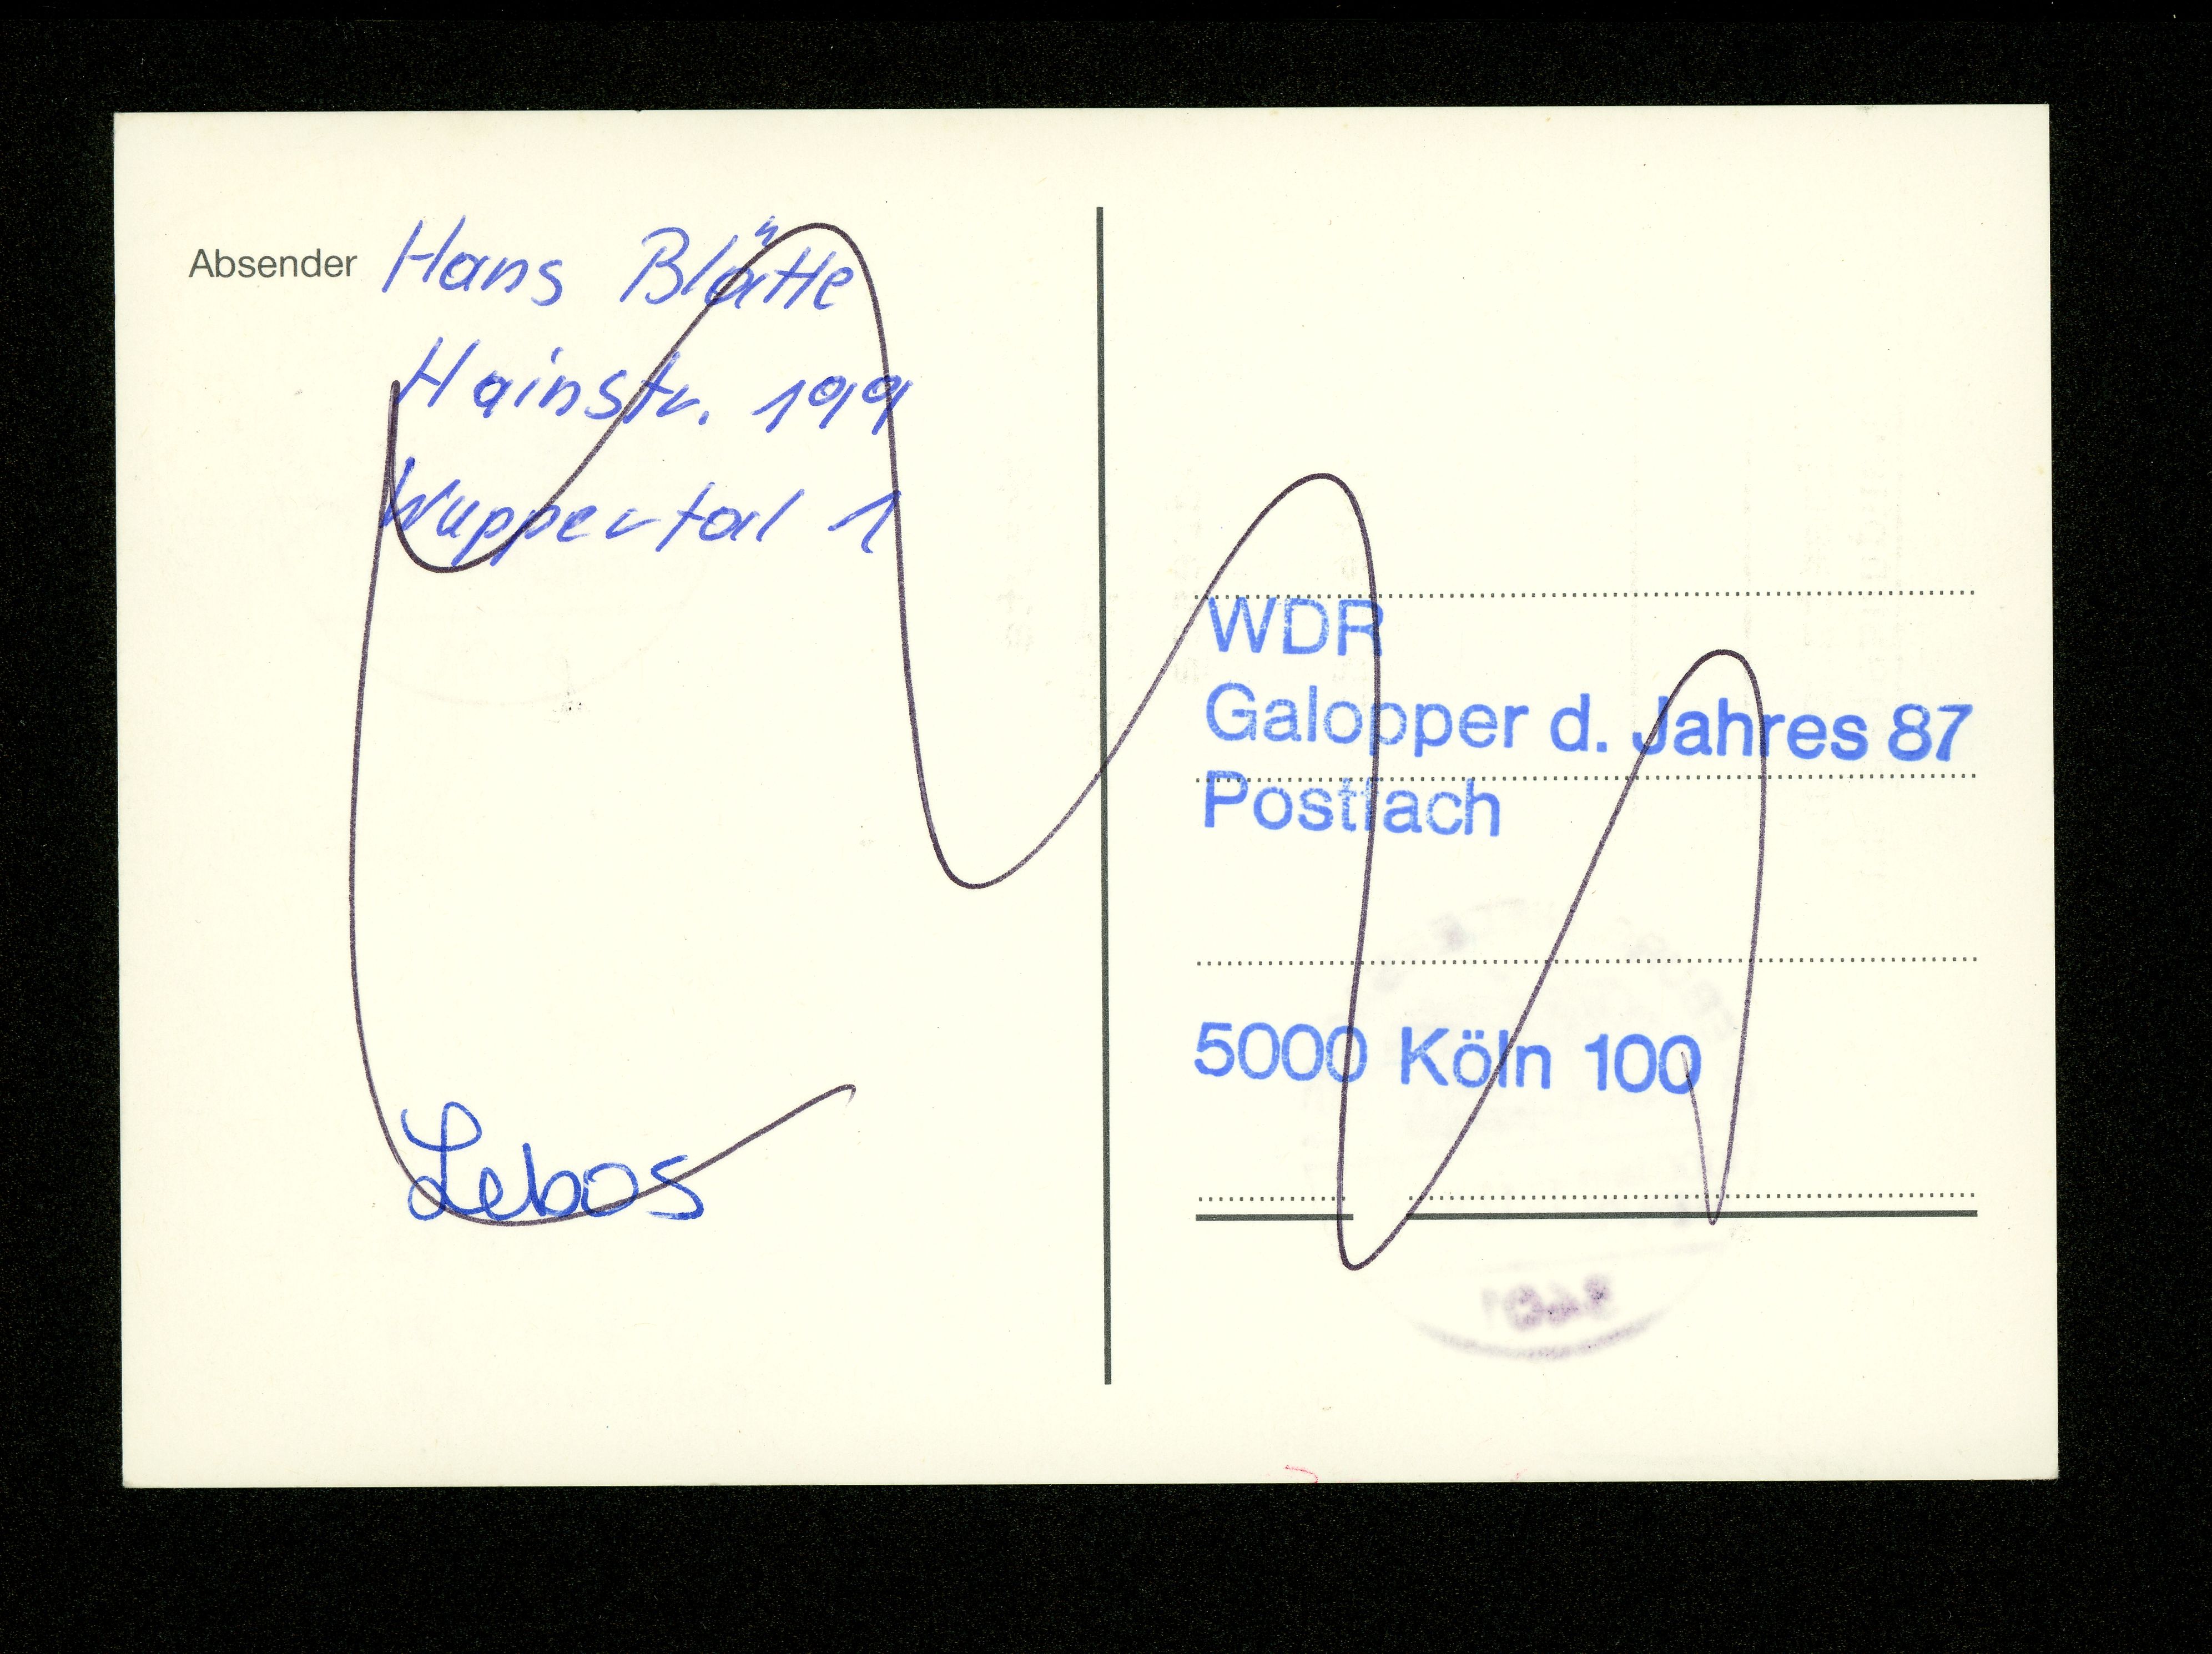 Absender Hans Blätte
Hainstr. 199
Wuppertal 1
Lebos
WDR
Galopper d. Jahres 87
Postfach
5000 Köln 100